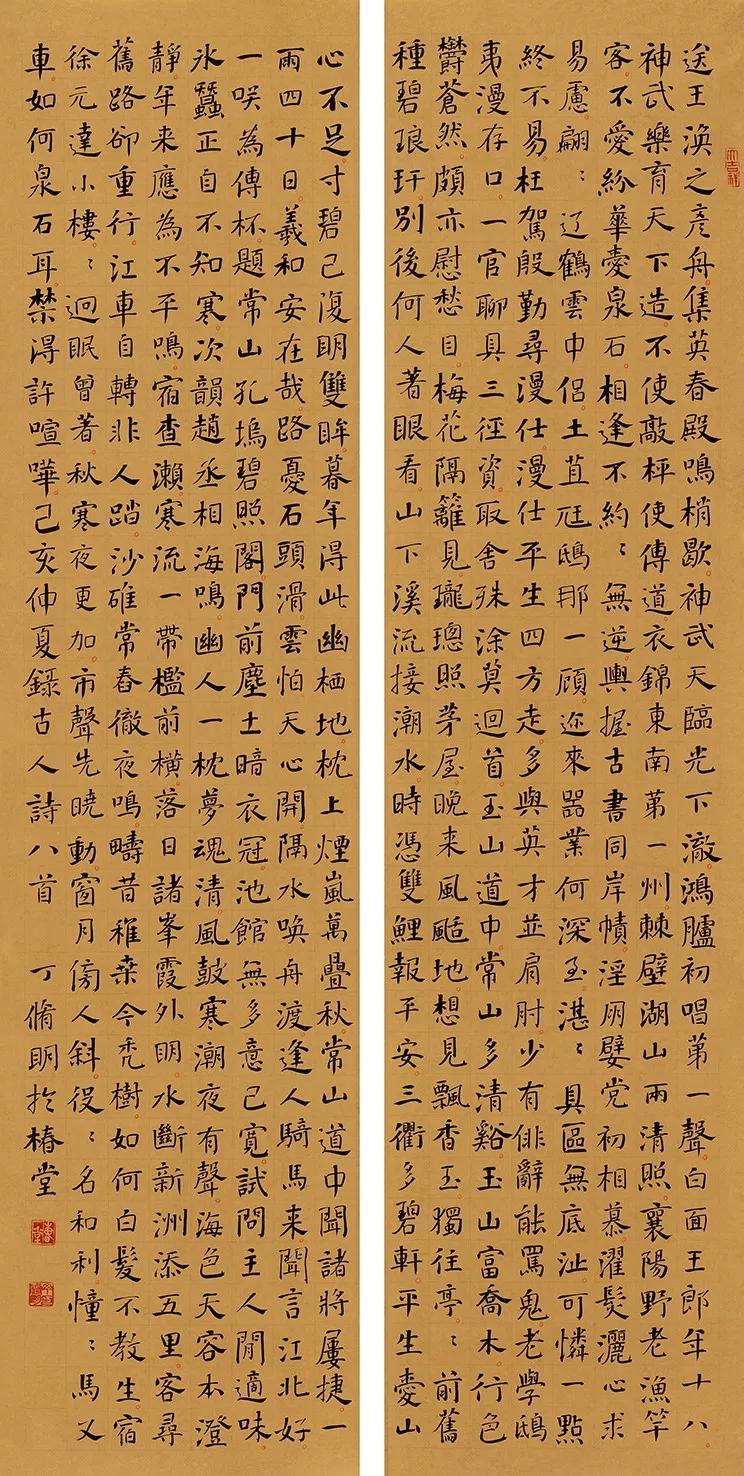 送王渙之彥舟集英春殿鳴梢歇神武天臨光下澈鴻臚初唱第一聲白面王郎年十八
神武樂育天下造不使敲枰使傳道衣錦東南第一州棘壁湖山兩清照襄陽野老漁竿
客不愛紛華愛泉石相逢不約〻無逆輿握古書同岸幘淫朋嬖党初相慕濯髮灑心求
易慮翩〻辽鶴雲中侶土苴尫鴟那一顧迩來器業何深至湛〻具區無底沚可憐一點
終不易枉駕殷勤尋漫仕漫仕平生四方走多與英才並肩肘少有俳辭能罵鬼老學鴟
夷漫存口一官聊具三徑資取舍殊涂莫迴首玉山道中常山多清谿玉山富喬木行色
欝蒼然頗亦慰愁目梅花隔籬見瓏璁照茅屋晚来風颭地想見飄香玉獨往亭〻前舊
種碧琅玕別後何人著眼看山下溪流接潮水時憑雙鯉報平安三衢多碧軒平生愛山
心不足寸碧已復明雙眸暮年得此幽栖地枕上煙嵐萬疊秋常山道中聞諸將屢捷一
雨四十日羲和安在哉路憂石頭滑雲怕天心開隔水喚舟渡逢人騎馬来聞言江北好
一咲為傳杯題常山孔塢碧照閣門前塵土暗衣冠池館無多意已寬試問主人閒適味
氷蠶正自不知寒次韻趙丞相海鳴幽人一枕夢魂清風鼓寒潮夜有聲海色天容本澄
靜年来應為不平鳴宿查瀨寒流一帶檻前橫落日諸峯霞外明水斷新洲添五里客尋
舊路卻重行江車自轉非人踏沙碓常舂徹夜鳴疇昔稚桒今禿樹如何白髮不教生宿
徐元達小樓〻迥眠曾著秋寒夜更加市聲先曉動窗月傍人斜役〻名和利憧〻馬又
車如何泉石耳禁得許喧嘩己亥仲夏錄古人詩八首 丁脩明於椿堂